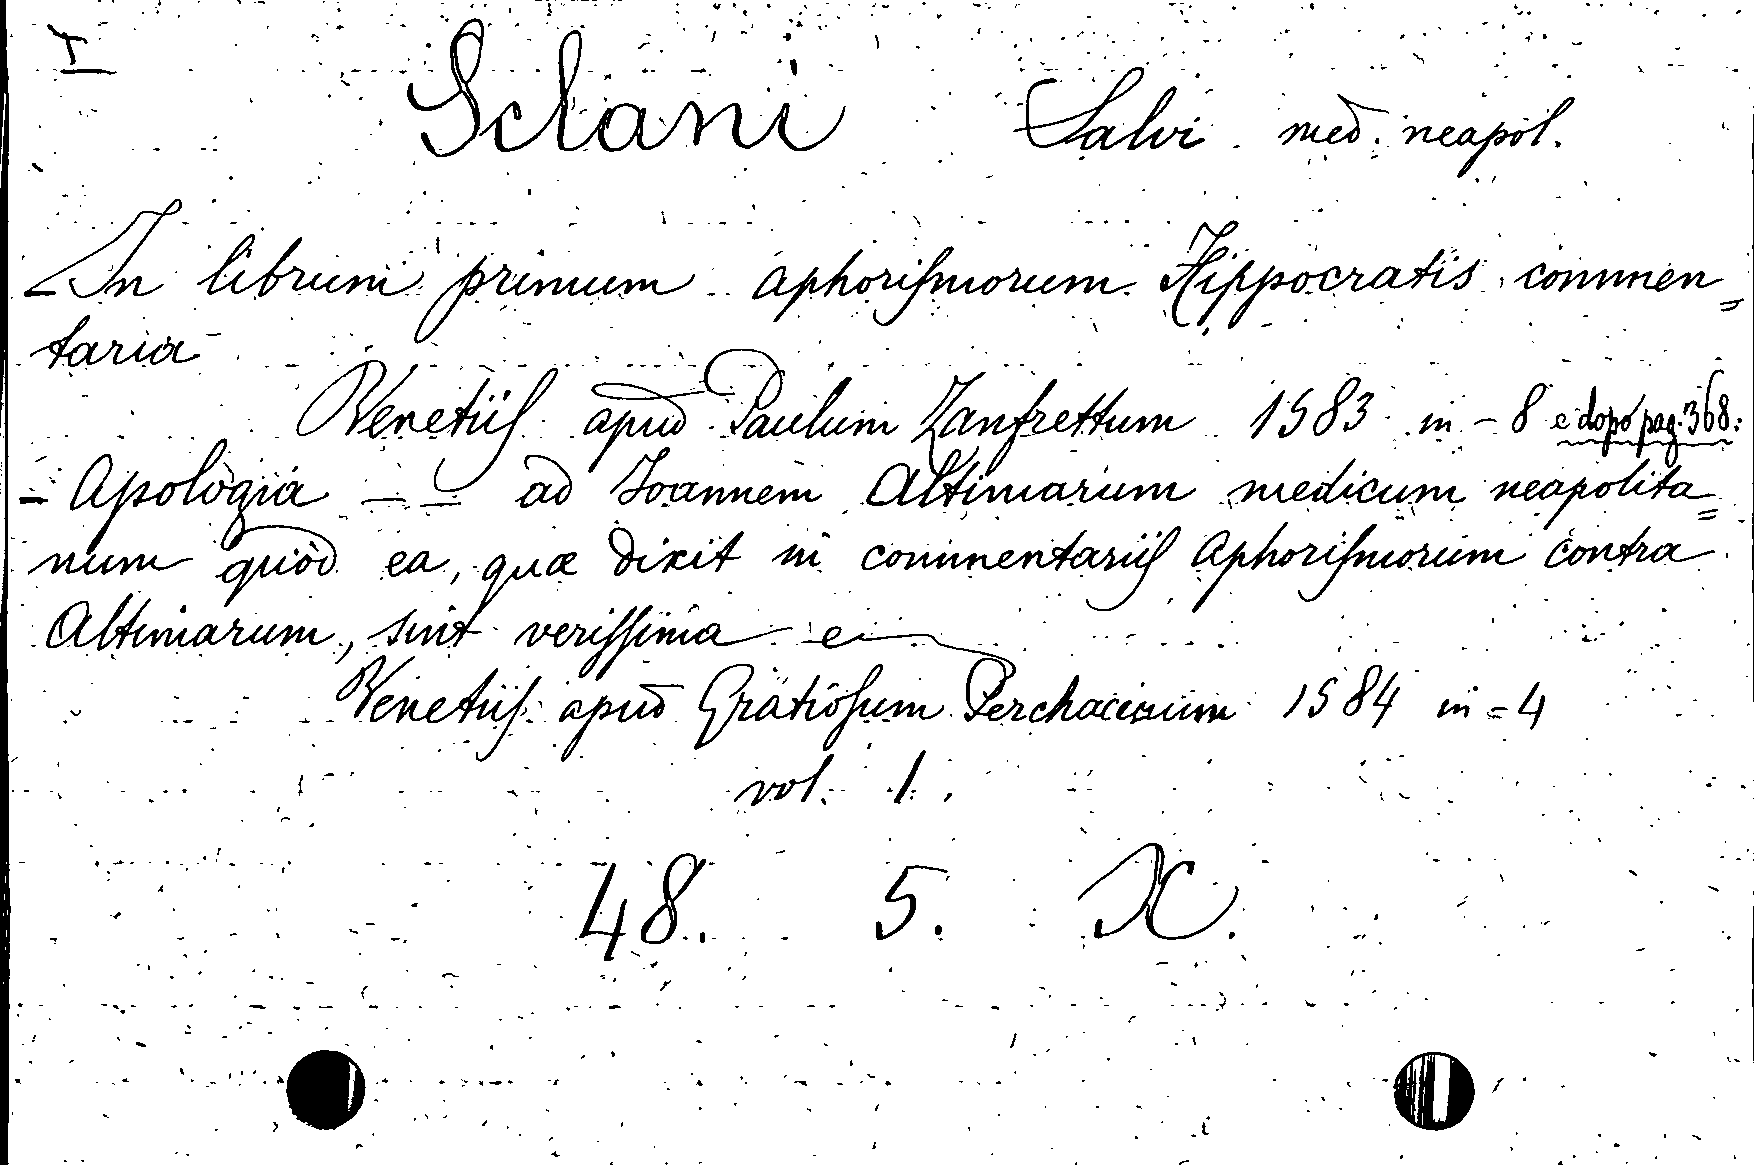 I
Sclani Salvi med. neapol.
In librum primum aphoriſmorum Hippocratis commen=
taria
Venetiiſ apud Paulum Zanfrettum 1583 in-8 e dopo pag. 368:
- Apologia — — ad Joannem Altimarum medicum neapolita=
num quòd ea, quæ dixit in commentariiſ aphoriſmorum contra
Altimarum, sint veriſſima
Venetiiſ apud Gratioſum Perchacinum 1584 in=4
vol. 1.
48. 5. X.